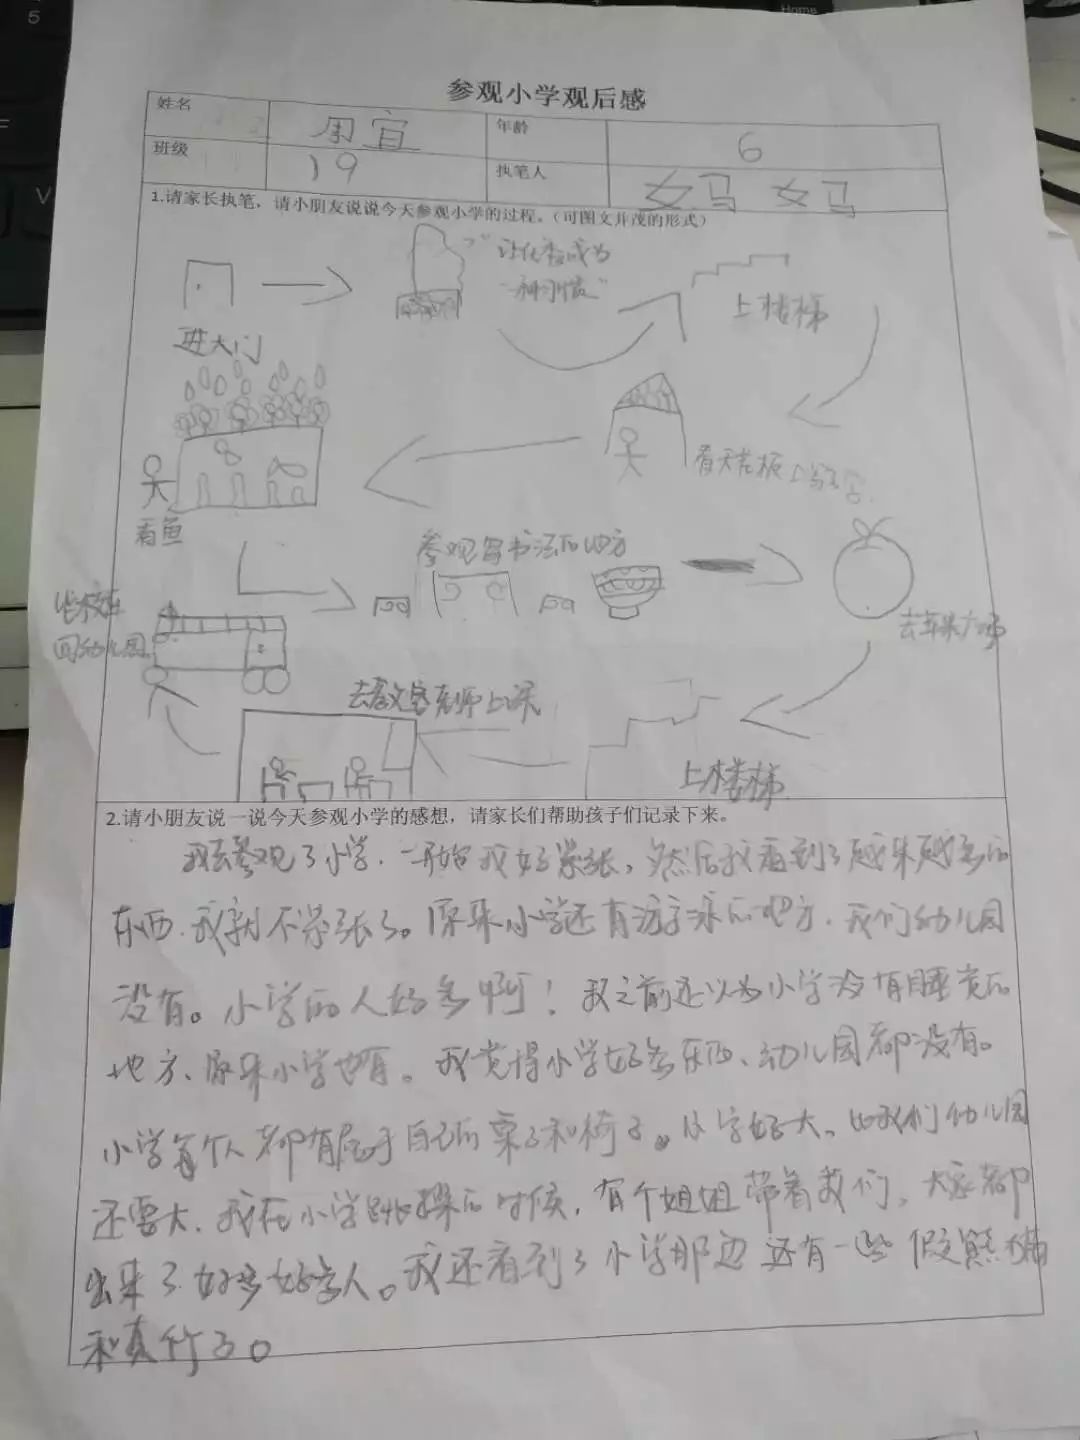 Home
5
F
V
参观小学观后感
姓名 周宜 年龄 6
班级 19 执笔人 妈妈
1.请家长执笔，请小朋友说说今天参观小学的过程。（可图文并茂的形式）
"让优秀成为
一种习惯"
上楼梯
进大门
看天花板上写字
看鱼
参观写书法的地方
坐校车
回幼儿园
去苹果广场
去教室老师上课
上楼梯
2.请小朋友说一说今天参观小学的感想，请家长们帮助孩子们记录下来。
我去参观了小学.一开始我好紧张，然后我看到了越来越多的
东西.我就不紧张了。原来小学还有游字泳的地方.我们幼儿园
没有。小学的人好多啊！我之前还以为小学没有睡觉的
地方、原来小学也有。我觉得小学好多东西、幼儿园都没有。
小学每个人都有属于自己的桌子和椅子。小学好大、比我们幼儿园
还要大.我在小学跳操的时候，有个姐姐带着我们、大家都
出来了好多好多人。我还看到了小学那边还有一些假熊猫
和真竹子。